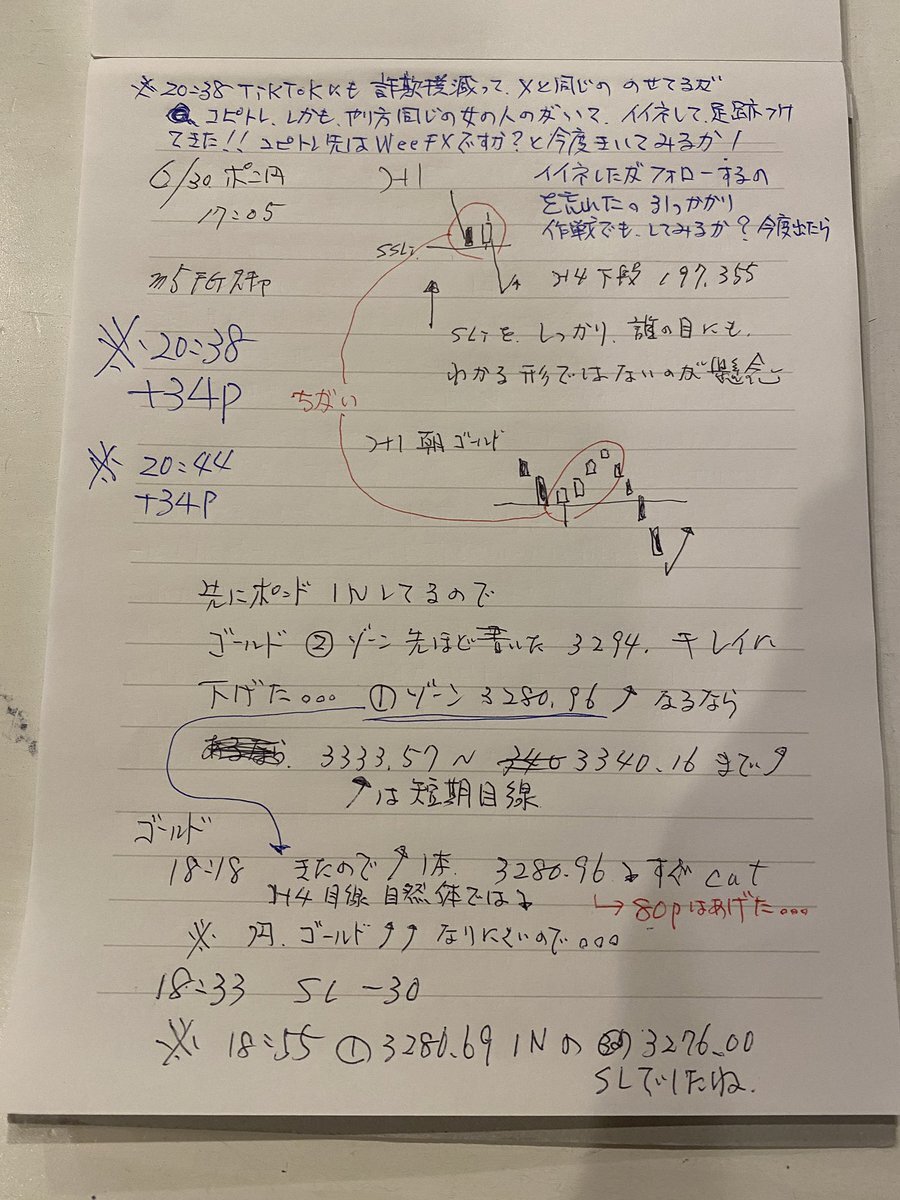 ※ 20:38 TikTokにも 詐欺撲滅って、Xと同じの のせてるが
コピトレ、しかも、やり方同じの女の人のがいて、イイネして、足跡つけ
てきた!! コピトレ先は WeeFXですか?と今度きいてみるか!
イイネしたがフォローするの
を忘れた。引っかかり
作戦でも、してみるか?今度出たら
6/30 ポン円
17:05
H1
SSL:
m5 FG スキャ
H4 下段 197.355
※ 20:38
+34p
SLIを、しっかり、誰の目にも、
わかる形ではないのが懸念
ちがい
※ 20:44
+34p
H1 朝 ゴールド
先にポンド INしてるので
ゴールド ② ゾーン 先ほど書いた 3294. キレイに
下げた... ① ゾーン 3280.96 ↑ なるなら
3333.57 〜 3340.16 まで↑
↑は短期目線
ゴールド
18:18 きたので ↑1本. 3280.96 すぐ cut
H4目線 自然体では↓
↳ 80pはあげた...
※ 円、ゴールド ↑↑ なりにくいので...
18:33 SL -30
※ 18:55 ① 3280.69 INの 3276.00
SLでしたね.